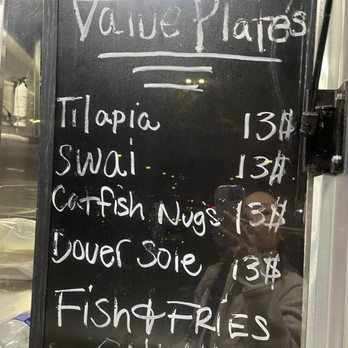 Value Plates
Tilapia 13$
Swai 13$
Catfish Nug's 13$
Dover Sole 13$
Fish & FRIES